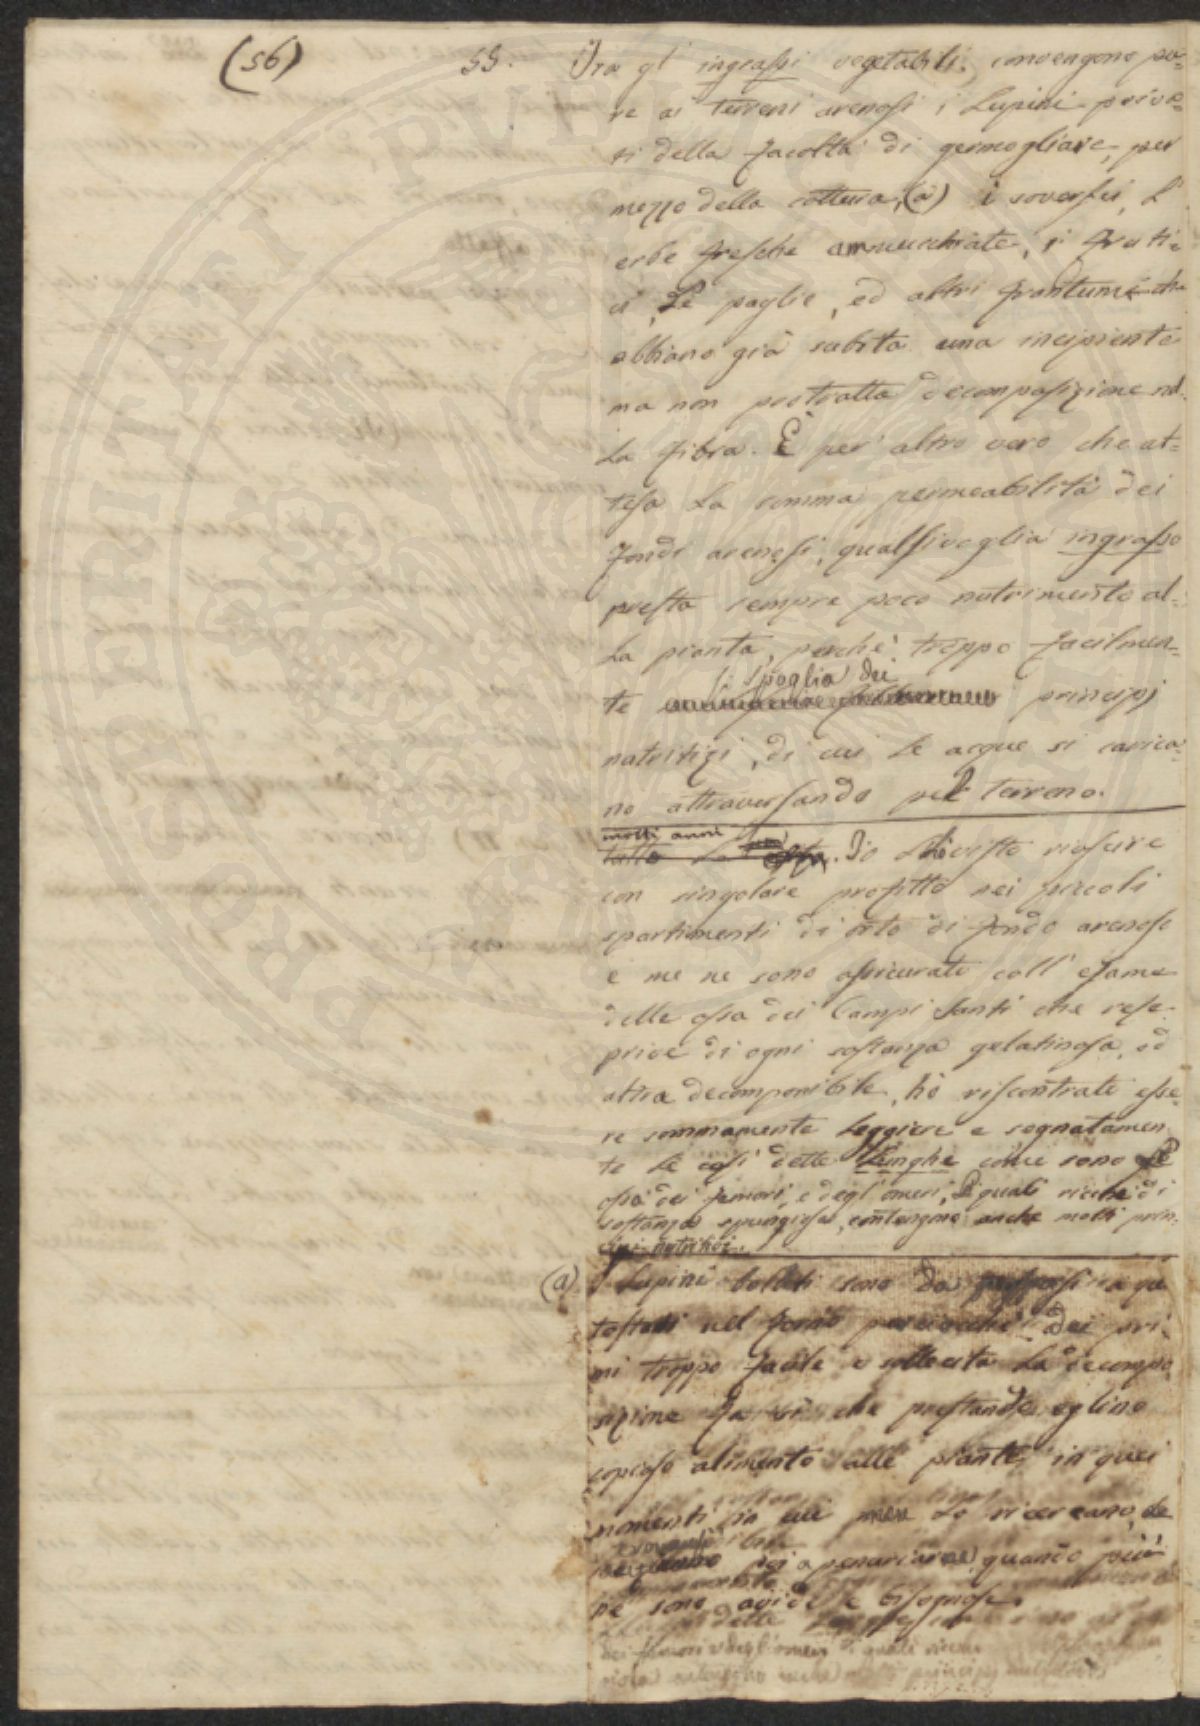 (56)
53. Tra gl' ingrassi vegetabili convengono pu=
re ai terreni arenosi i Lupini priva=
ti della facoltà di germogliare, per
mezzo della cottura, (a) i soversci, l'
erbe fresche ammucchiate, i fruti=
ci, le paglie, ed altri frantumi che
abbiano già subita una incipiente
ma non protratta decomposizione nel=
la fibra. È per altro vero che at=
tesa la somma permeabilità dei
fondi arenosi, qualsivoglia ingrasso
presta sempre poco nutrimento al=
la pianta, perchè troppo facilmen=
si spoglia dei
te principj
nutritizj, di cui le acque si carica=
no attraversando pel terreno.
molti anni
tutto la Io l'ho visto riuscire
con singolare profitto nei piccoli
spartimenti di orto di fondo arenoso
e me ne sono assicurato coll' esame
delle ossa dei Campi Santi che rese
prive di ogni sostanza gelatinosa, ed
altra decomponibile, ho riscontrate esse=
re sommamente leggiere e segnatamen
te le così dette Lunghe come sono le
ossa dei femori, e degl'omeri, le quali ricche di
sostanza spungiosa, contengono anche molti prin=
cipi nutritivi.
(a) I Lupini bolliti sono da
tostati nel forno perciocchè dei pri=
mi troppo facile e sollecita la decompo
sizione fa sì che prestando eglino
copioso alimento alle piante in quei
momenti in cui men lo ricercano, le
poi a penuriare quando più
ne sono avide e bisognose.
delle
dei femori e degl'omeri le quali ricche
anche molti principj nutritivi